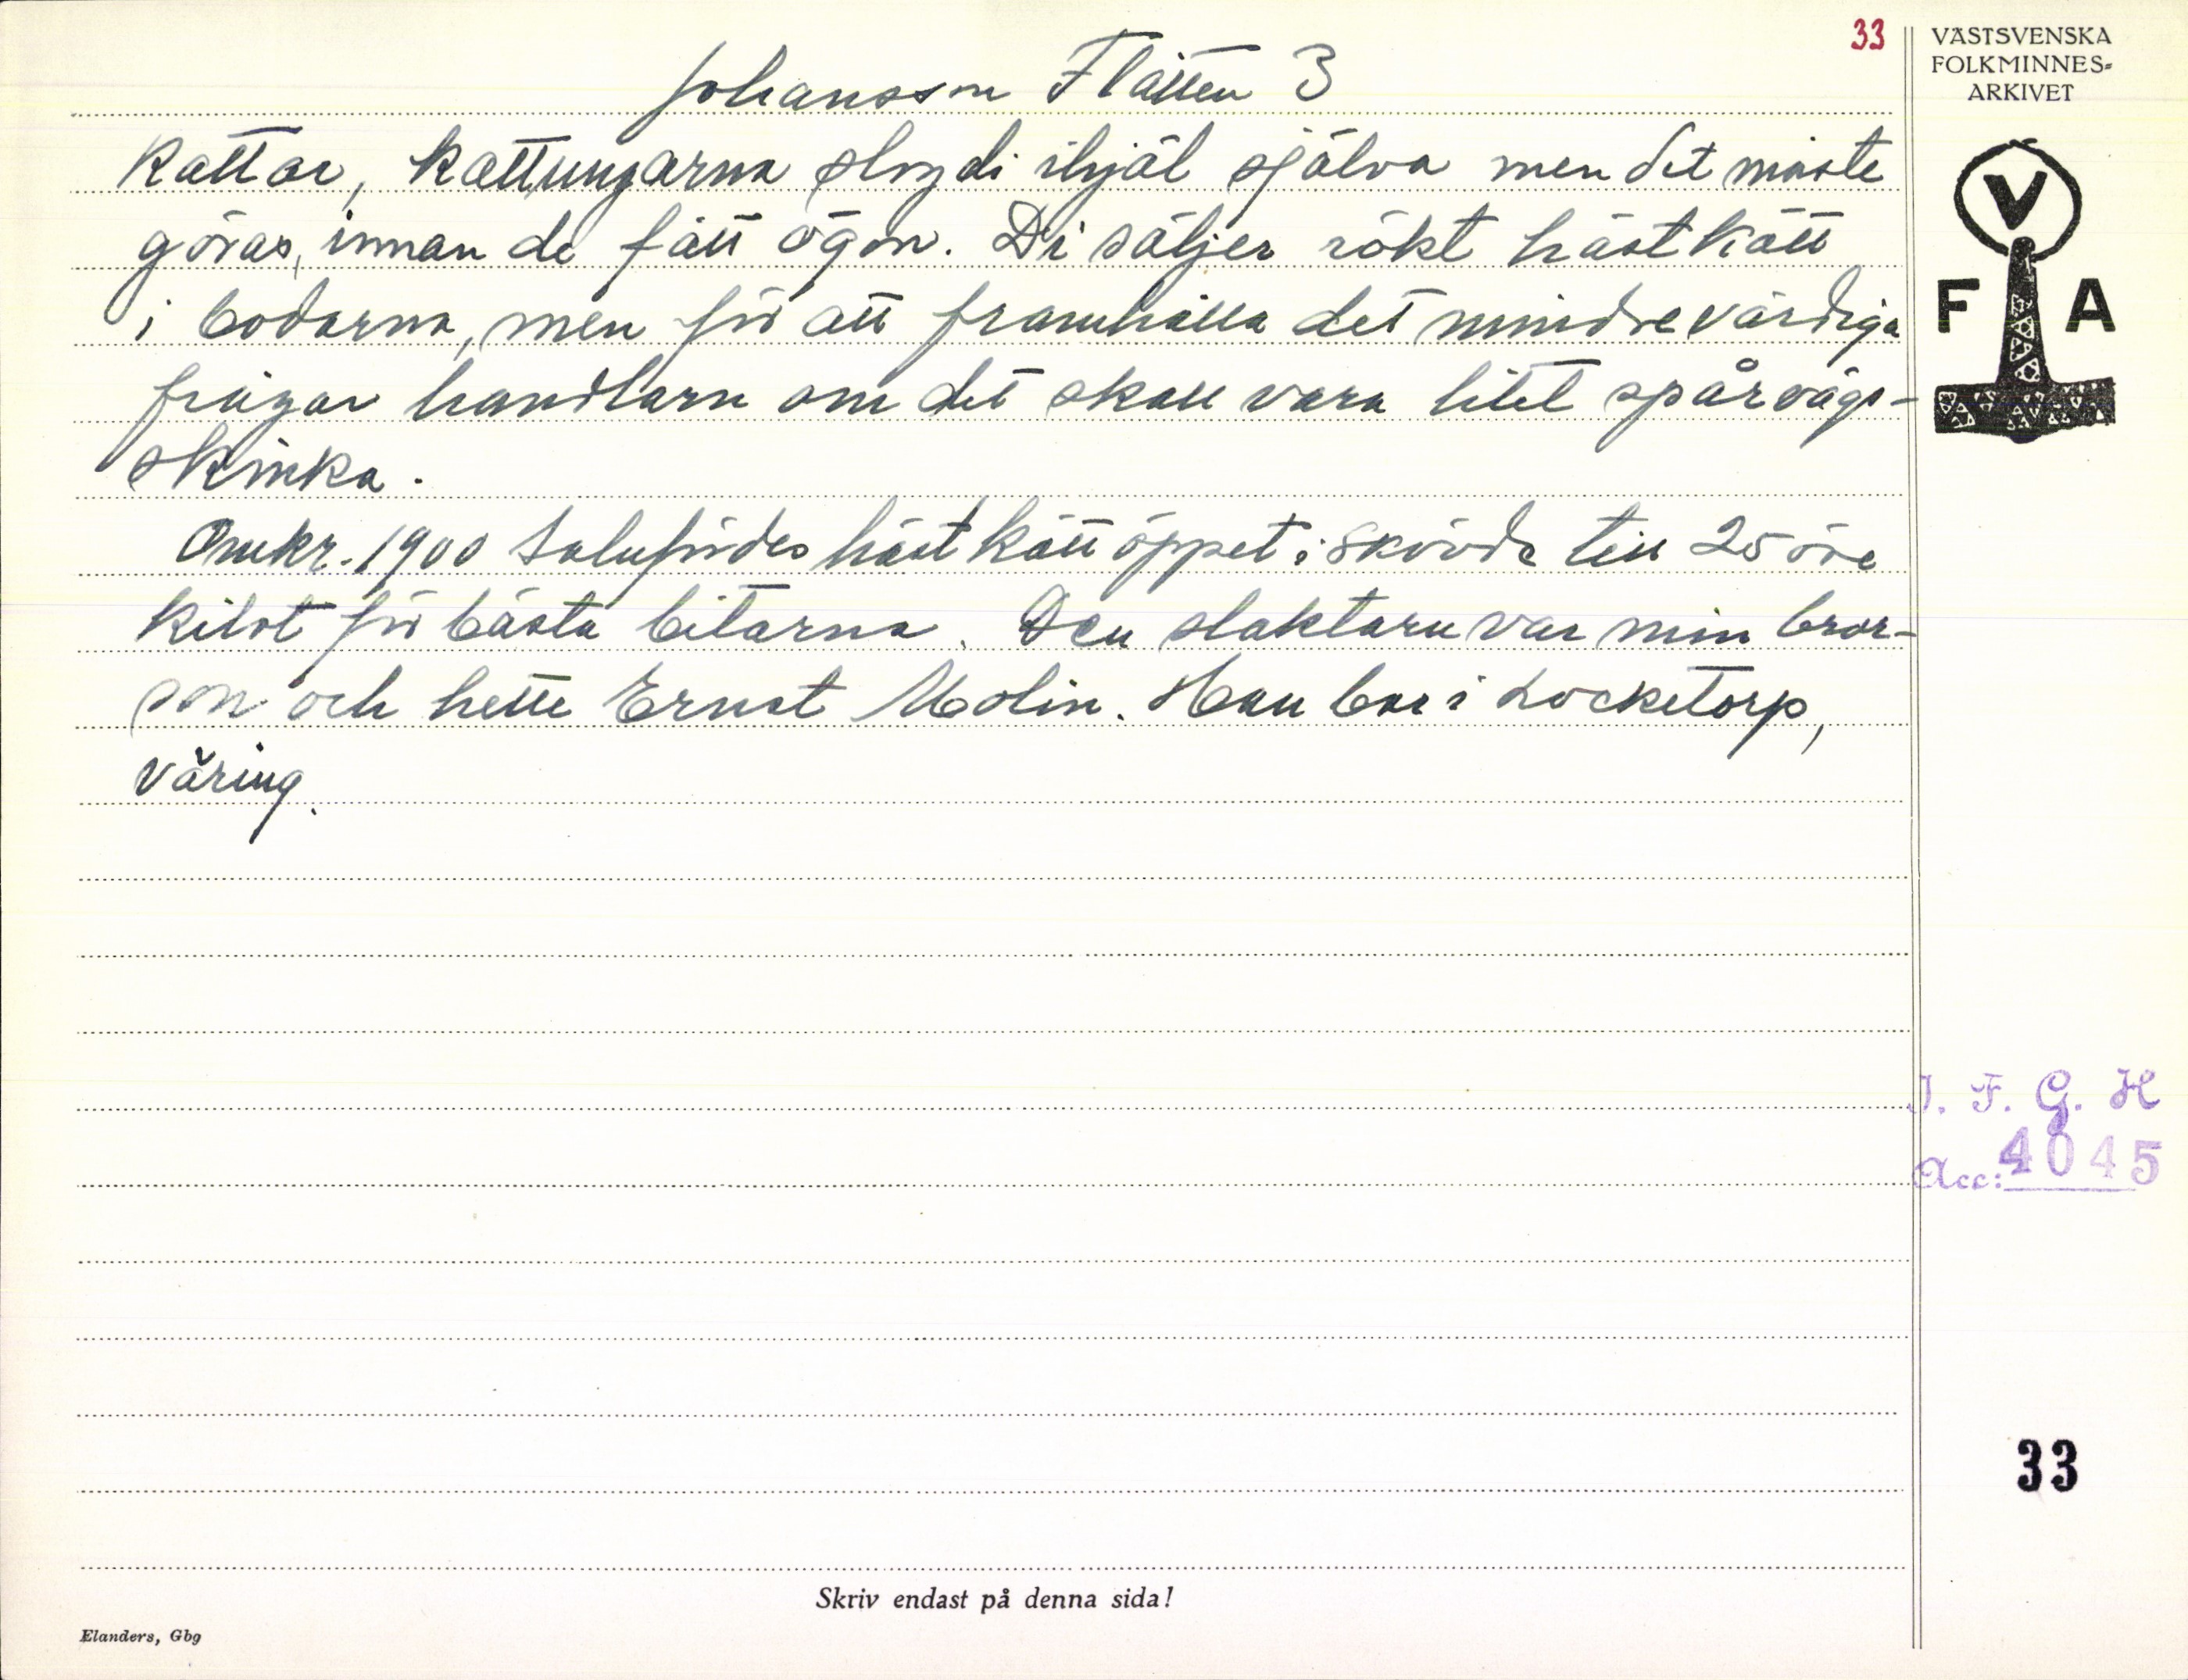 33
VÄSTSVENSKA
FOLKMINNES=
ARKIVET
Johansson Flätten 3
Kattar, kattungarna slog di ihjäl själva men det måste
göras, innan de fått ögon. Di säljer rökt hästkött
i bodarna, men för att framhålla det mindrevärdiga
frågar handlarn om det skall vara litet spårvägs-
skinka.
Omkr. 1900 salufördes hästkött öppet i Skövde till 25 öre
kilot för bästa bitarna. Den slaktarn var min bror-
son och hette Ernst Molin. Han bor i Locketorp,
Väring.
V
F A
I. F. G. H
Acc: 4045
33
Skriv endast på denna sida!
Elanders, Gbg